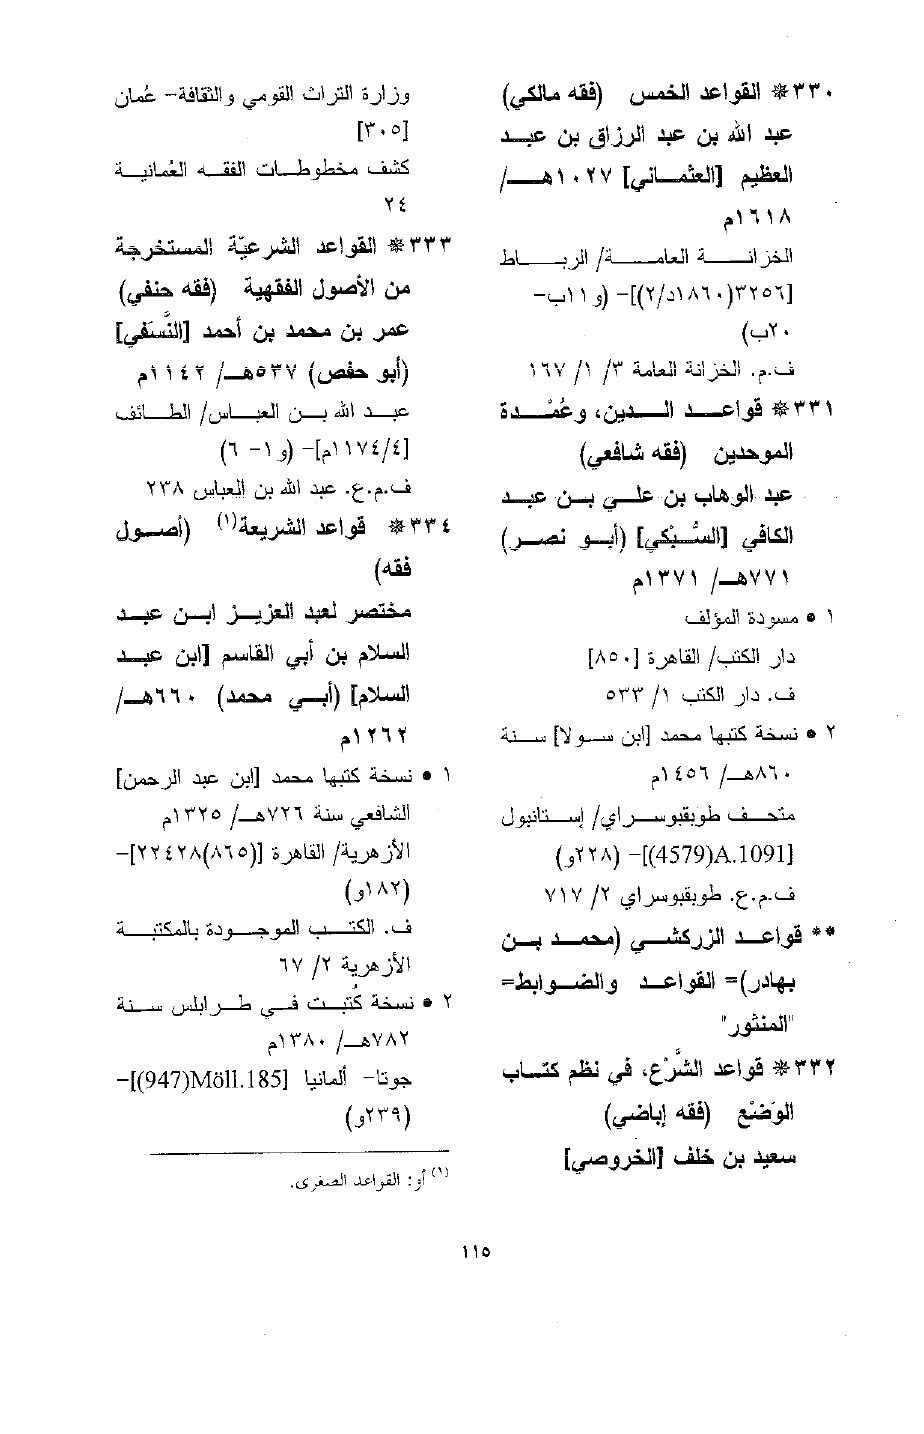 ٣٣٠* القواعد الخمس (فقه مالكي)
عبد الله بن عبد الرزاق بن عبد
العظيم [العثماني] ١٠٢٧هـ/
١٦١٨م
الخزانة العامة/ الرباط
[٣٢٥٦(١٨٦٠د/٢)]- (و١١ب-
٢٠ب)
ف.م. الخزانة العامة ٣/ ١/ ١٦٧
٣٣١* قواعد الدين، وعُمْدة
الموحدين (فقه شافعي)
عبد الوهاب بن علي بن عبد
الكافي [السُّبْكي] (أبو نصر)
٧٧١هـ/ ١٣٧١م
١ • مسودة المؤلف
دار الكتب/ القاهرة [٨٥٠]
ف. دار الكتب ١/ ٥٣٣
٢ • نسخة كتبها محمد [ابن سولا] سنة
٨٦٠هـ/ ١٤٥٦م
متحف طوبقبوسراي/ إستانبول
[(4579)A.1091]- (٢٢٨و)
ف.م.ع. طوبقبوسراي ٢/ ٧١٧
** قواعد الزركشي (محمد بن
بهادر)= القواعد والضوابط=
"المنثور"
٣٣٢* قواعد الشَّرْع، في نظم كتاب
الوَضْع (فقه إباضي)
سعيد بن خلف [الخروصي]
وزارة التراث القومي والثقافة- عُمان
[٣٠٥]
كشف مخطوطات الفقه العُمانية
٢٤
٣٣٣* القواعد الشرعيّة المستخرجة
من الأصول الفقهية (فقه حنفي)
عمر بن محمد بن أحمد [النَّسَفي]
(أبو حفص) ٥٣٧هـ/ ١١٤٢م
عبد الله بن العباس/ الطائف
[١١٧٤/٤م]- (و١- ٦)
ف.م.ع. عبد الله بن العباس ٢٣٨
٣٣٤* قواعد الشريعة(١) (أصول
فقه)
مختصر لعبد العزيز ابن عبد
السلام بن أبي القاسم [ابن عبد
السلام] (أبي محمد) ٦٦٠هـ/
١٢٦٢م
١ • نسخة كتبها محمد [ابن عبد الرحمن]
الشافعي سنة ٧٢٦هـ/ ١٣٢٥م
الأزهرية/ القاهرة [(٨٦٥)٢٢٤٢٨]-
(١٨٢و)
ف. الكتب الموجودة بالمكتبة
الأزهرية ٢/ ٦٧
٢ • نسخة كُتبت في طرابلس سنة
٧٨٢هـ/ ١٣٨٠م
جوتا- ألمانيا [(947)Möll.185]-
(٢٣٩و)
(١) أو: القواعد الصغرى.
١١٥